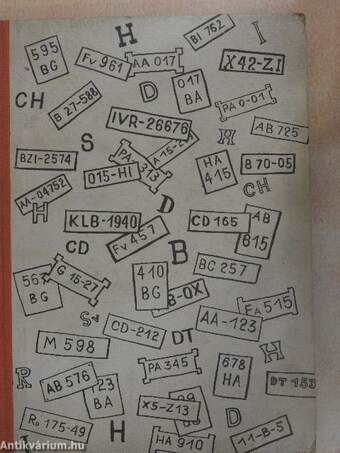 H
I
595
BG
Fv 961
AA 017
BI 762
X42-ZI
CH
B 27-588
D
017
BA
PA 0-01
IVR-26676
AB 725
S
H
BZI-2574
PA
313
HA
415
B 70-05
015-HI
CH
M-04752
H
D
KLB-1940
CD 165
AB
615
CD
Fv 457
B
BC 257
G 15-27
BG
410
BG
B-OX
EA 515
CD-212
AA-123
DT
M 598
H
PA 345
678
HA
R
AB 576
23
BA
DT 153
X5-Z13
D
Ro 175-49
H
HA 910
11-B-5
Antikvárium.hu